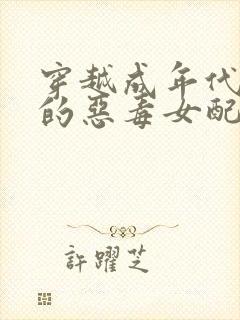 穿越成年代
的惡毒女配
許躍芝